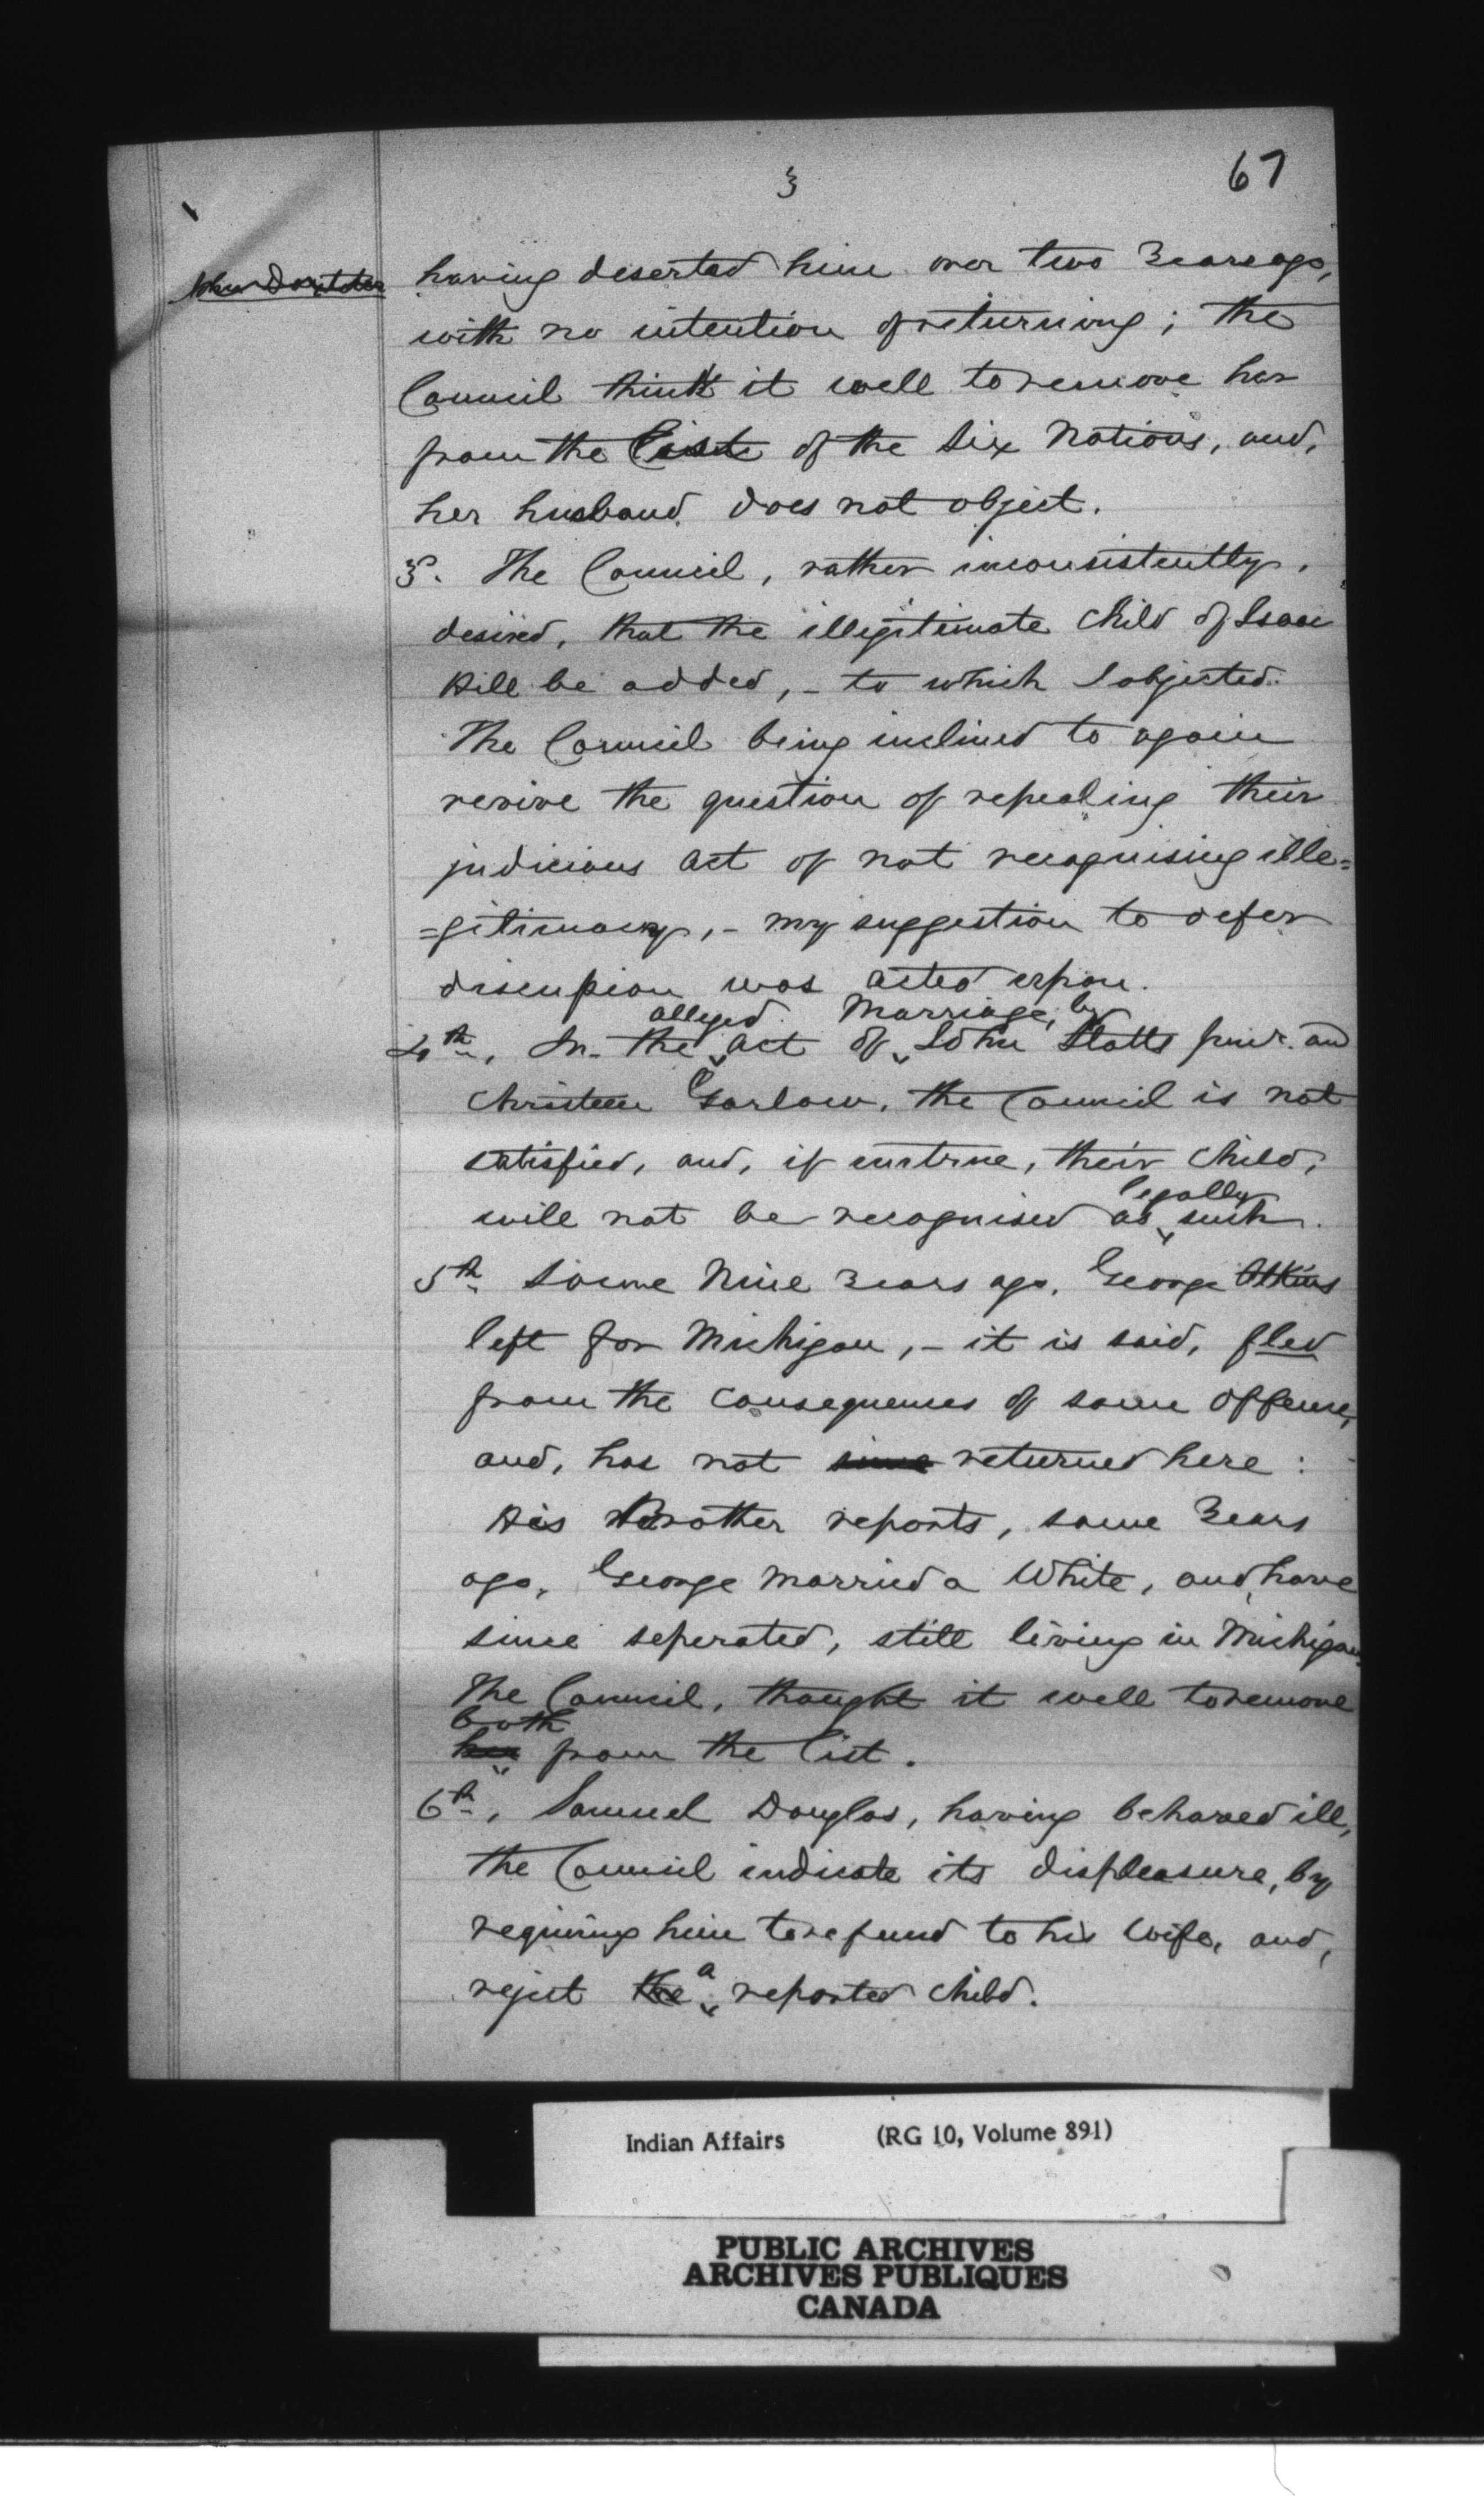 3
67
John Doxtater
having deserted him over two Years ago,
with no intention of returning; the
Council think it well to remove her
from the List of the Six Nations, and,
her husband does not object.
3. The Council, rather inconsistently,
desired, that the illegitimate Child of Isaac
Hill be added, - to which I objected.
The Council being inclined to again
revive the question of repealing their
judicious act of not recognising ille=
=gitimacy, - my suggestion to defer
discussion was acted upon.
4th, In the alleged act of Marriage, by John Statts junr. and
Christeen Garlow, the Council is not
satisfied, and, if untrue, their Child,
will not be recognised as legally such.
5th Some Nine Years ago, George Atkins
left for Michigan, - it is said, fled
from the Consequences of some Offense,
and, has not since returned here :
His Brother reports, some Years
ago, George married a White, and, have
since seperated, still living in Michigan.
The Council, thought it well to remove
both from the List.
6th, Samuel Douglas, having behaved ill,
the Council indicate its displeasure, by
requiring him to refund to his Wife, and,
reject the a reported Child.
Indian Affairs (RG 10, Volume 891)
PUBLIC ARCHIVES
ARCHIVES PUBLIQUES
CANADA